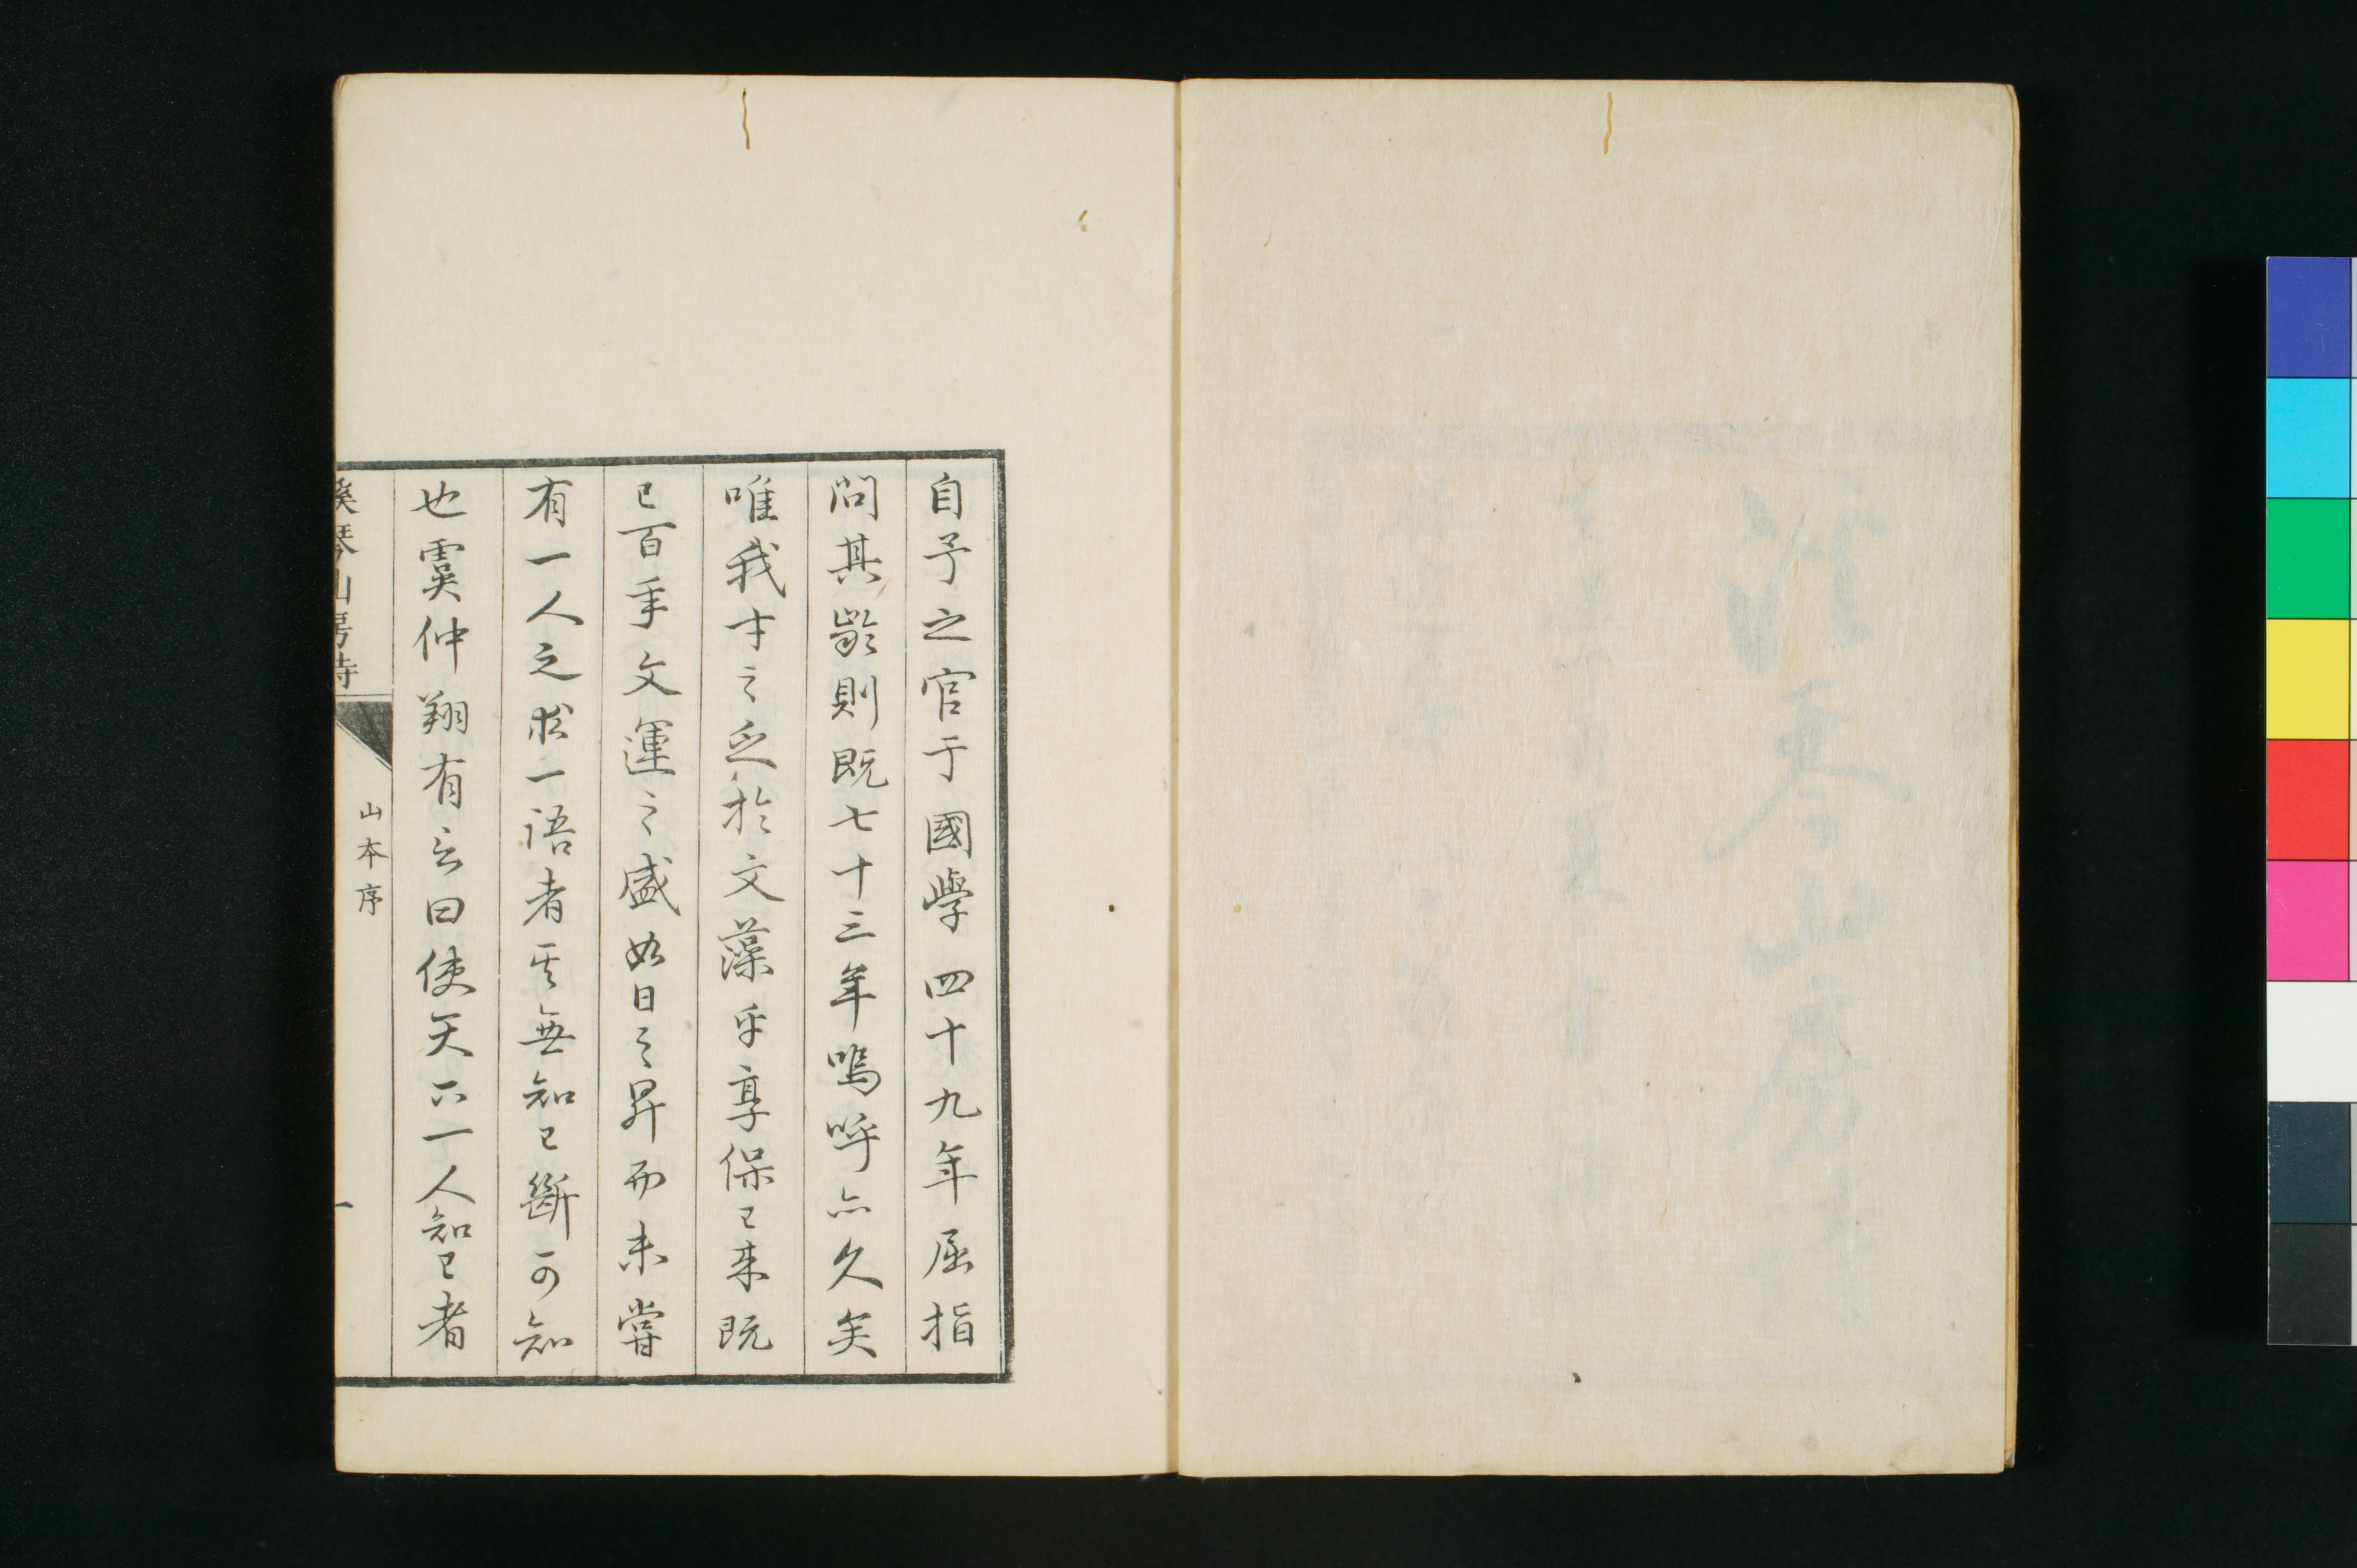 自予之官于國學四十九年屈指
問其齡則既七十三年嗚呼亦久矣
唯我才之乏於文藻乎享保已来既
已百年文運之盛如日之昇而未嘗
有一人之求一語者其無知已斷可知
也虞仲翔有云曰使天下一人知已者
溪琴山房詩
山本序
一